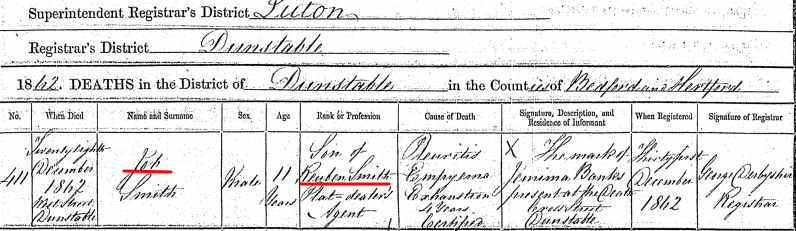 Superintendent Registrar's District Luton
Registrar's District Dunstable
1862. DEATHS in the District of Dunstable in the Counties of Bedford and Hertford
No. When Died Name and Surname Sex Age Rank or Profession Cause of Death Signature, Description, and Residence of Informant When Registered Signature of Registrar
411
Twenty eighth
December
1862
West Street
Dunstable
Job
Smith
Male
11
Years
Son of
Reuben Smith
Plat-dealer's
Agent
Pleuritis
Empyema
Exhaustion
4 Years
Certified
X The mark of
Jemima Banks
present at the Death
Cross Street
Dunstable
Thirty first
December
1862
George Derbyshire
Registrar